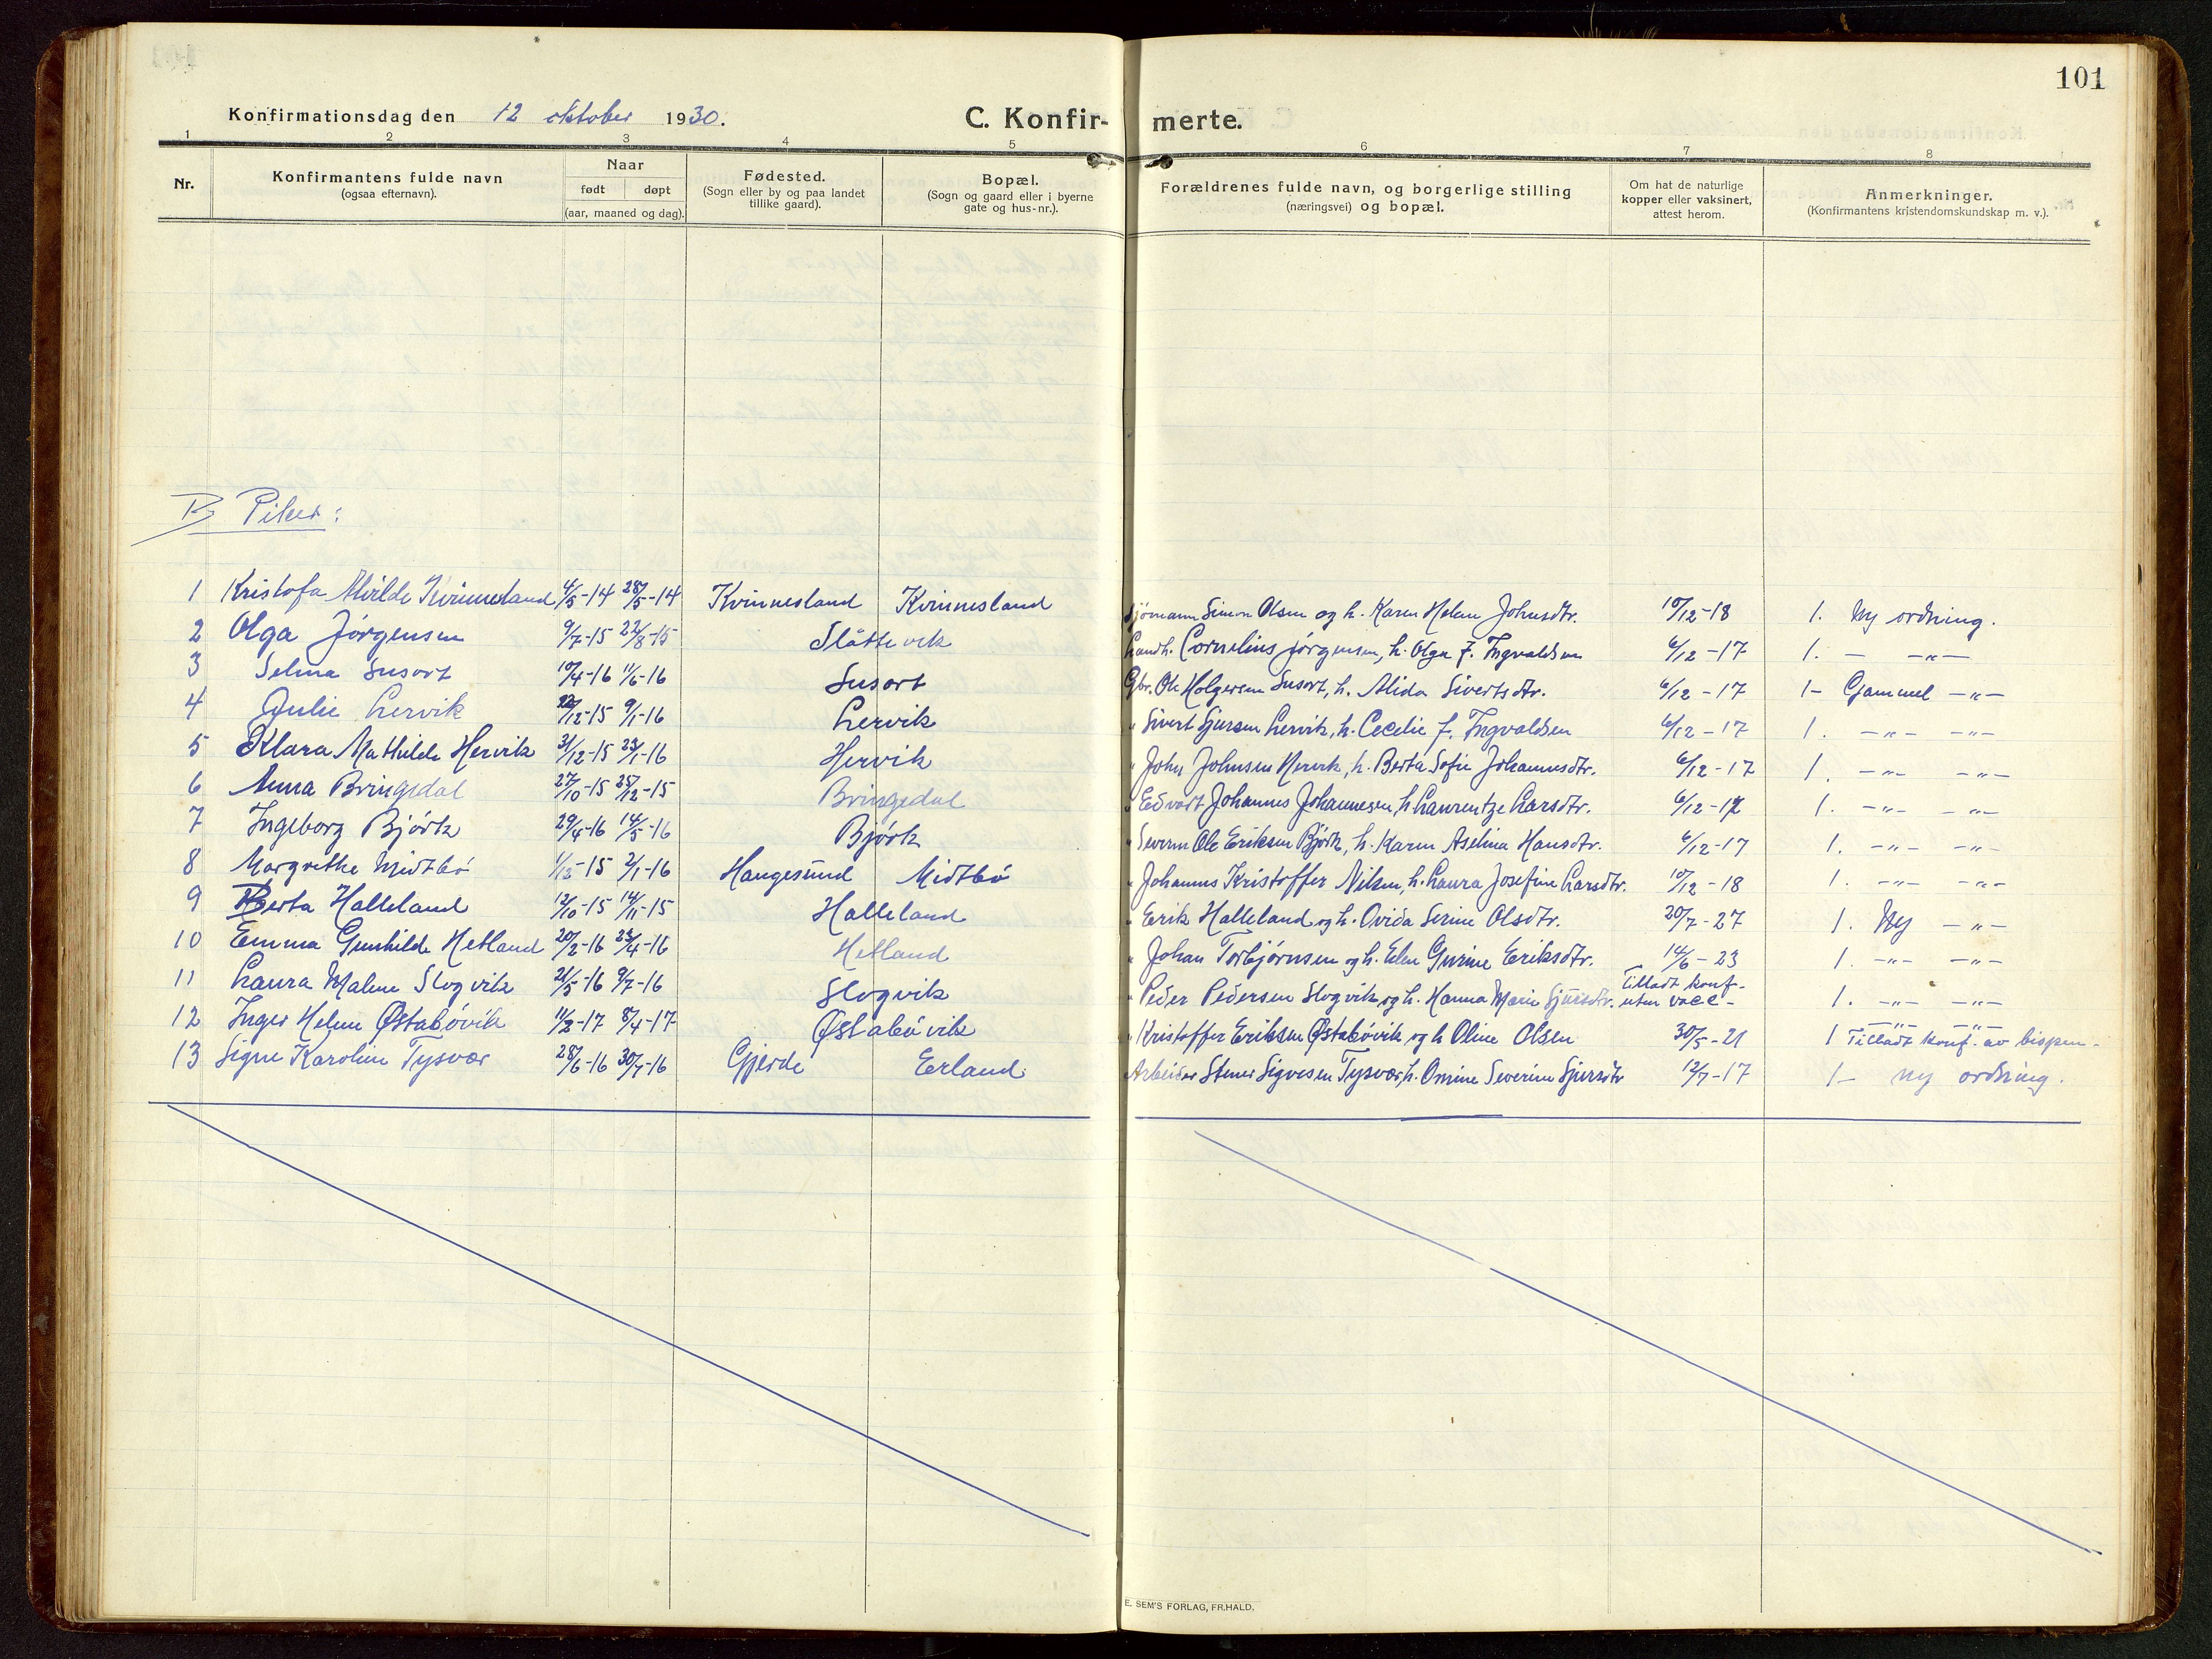 101
Konfirmationsdag den 12 oktober 1930.
C. Konfirmerte.
1 2 3 4 5 6 7 8
Nr. | Konfirmantens fulde navn (ogsaa efternavn). | Naar født døpt (aar, maaned og dag). | Fødested. (Sogn eller by og paa landet tillike gaard). | Bopæl. (Sogn og gaard eller i byerne gate og hus-nr.). | Forældrenes fulde navn, og borgerlige stilling (næringsvei) og bopæl. | Om hat de naturlige kopper eller vaksinert, attest herom. | Anmerkninger. (Konfirmantens kristendomskundskap m. v.).
B Piker:
1 Kristofa Alvilde Kvinnesland 4/5-14 28/5-14 Kvinnesland Kvinnesland Sjømann Simon Olsen og h. Karen Helene Johnsdtr. 10/12-18 1. Ny ordning.
2 Olga Jörgensen 9/7-15 22/8-15 Slåttevik Landh. Cornelius Jörgensen, h. Olga f. Ingvaldsen 6/12-17 1. — -„-
3 Selma Susort 10/4-16 1/6-16 Susort Gbr. Ole Holgersen Susort, h. Alida Sivertsdtr. 6/12-17 1- Gammel -„-
4 Julie Lervik 22/12-15 9/1-16 Lervik „ Sivert Sjursen Lervik, h. Cecelie f. Ingvaldsen 6/12-17 1. -„- -„-
5 Klara Mathilde Hervik 31/12-15 23/1-16 Hervik „ John Johnsen Hervik, h. Berta Sofie Johannesdtr. 6/12-17 1. -„- -„-
6 Anna Bringedal 27/10-15 25/12-15 Bringedal „ Edvart Johannes Johannesen, h. Laurentze Larsdtr. 6/12-17 1. -„- -„-
7 Ingeborg Björk 29/4-16 14/5-16 Björk „ Severin Ole Eriksen Björk, h. Karen Aselina Hansdtr. 6/12-17 1. -„- -„-
8 Margrethe Midtbö 1/12-15 2/1-16 Haugesund Midtbö „ Johannes Kristoffer Nilsen, h. Laura Josefine Larsdtr. 10/12-18 1. -„- -„-
9 Berta Halleland 12/10-15 14/11-15 Halleland „ Erik Halleland og h. Ovida Serine Olsdtr. 20/7-27 1. Ny -„-
10 Emma Gunhilde Hetland 20/2-16 23/4-16 Hetland „ Johan Torbjørnsen og h. Elen Gurine Eriksdtr. 14/6-23 1. -„- -„-
11 Laura Malene Slogvik 21/5-16 9/7-16 Slogvik „ Peder Pedersen Slogvik og h. Hanna Marie Sjursdtr. Tilladt konf. uten vacc- 1. -„- -„-
12 Inger Helene Østabövik 11/2-17 8/4-17 Østabövik „ Kristoffer Eriksen Østabövik og h Oline Olsen 30/5-21 1 -„- -„- Tilladt konf. av bispen-
13 Signe Karoline Tysvær 28/6-16 30/7-16 Gjerde Erland. Arbeider Stener Sigvesen Tysvær, h. Omine Severine Sjursdtr 12/7-17 1- ny ordning.
E. SEM'S FORLAG, FR.HALD.